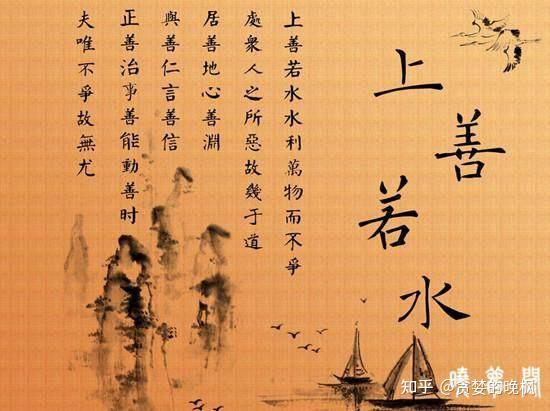 上善若水
上善若水水利萬物而不爭
處衆人之所惡故幾于道
居善地心善淵
與善仁言善信
正善治事善能動善时
夫唯不爭故無尤
知乎 @贪婪的晚枫